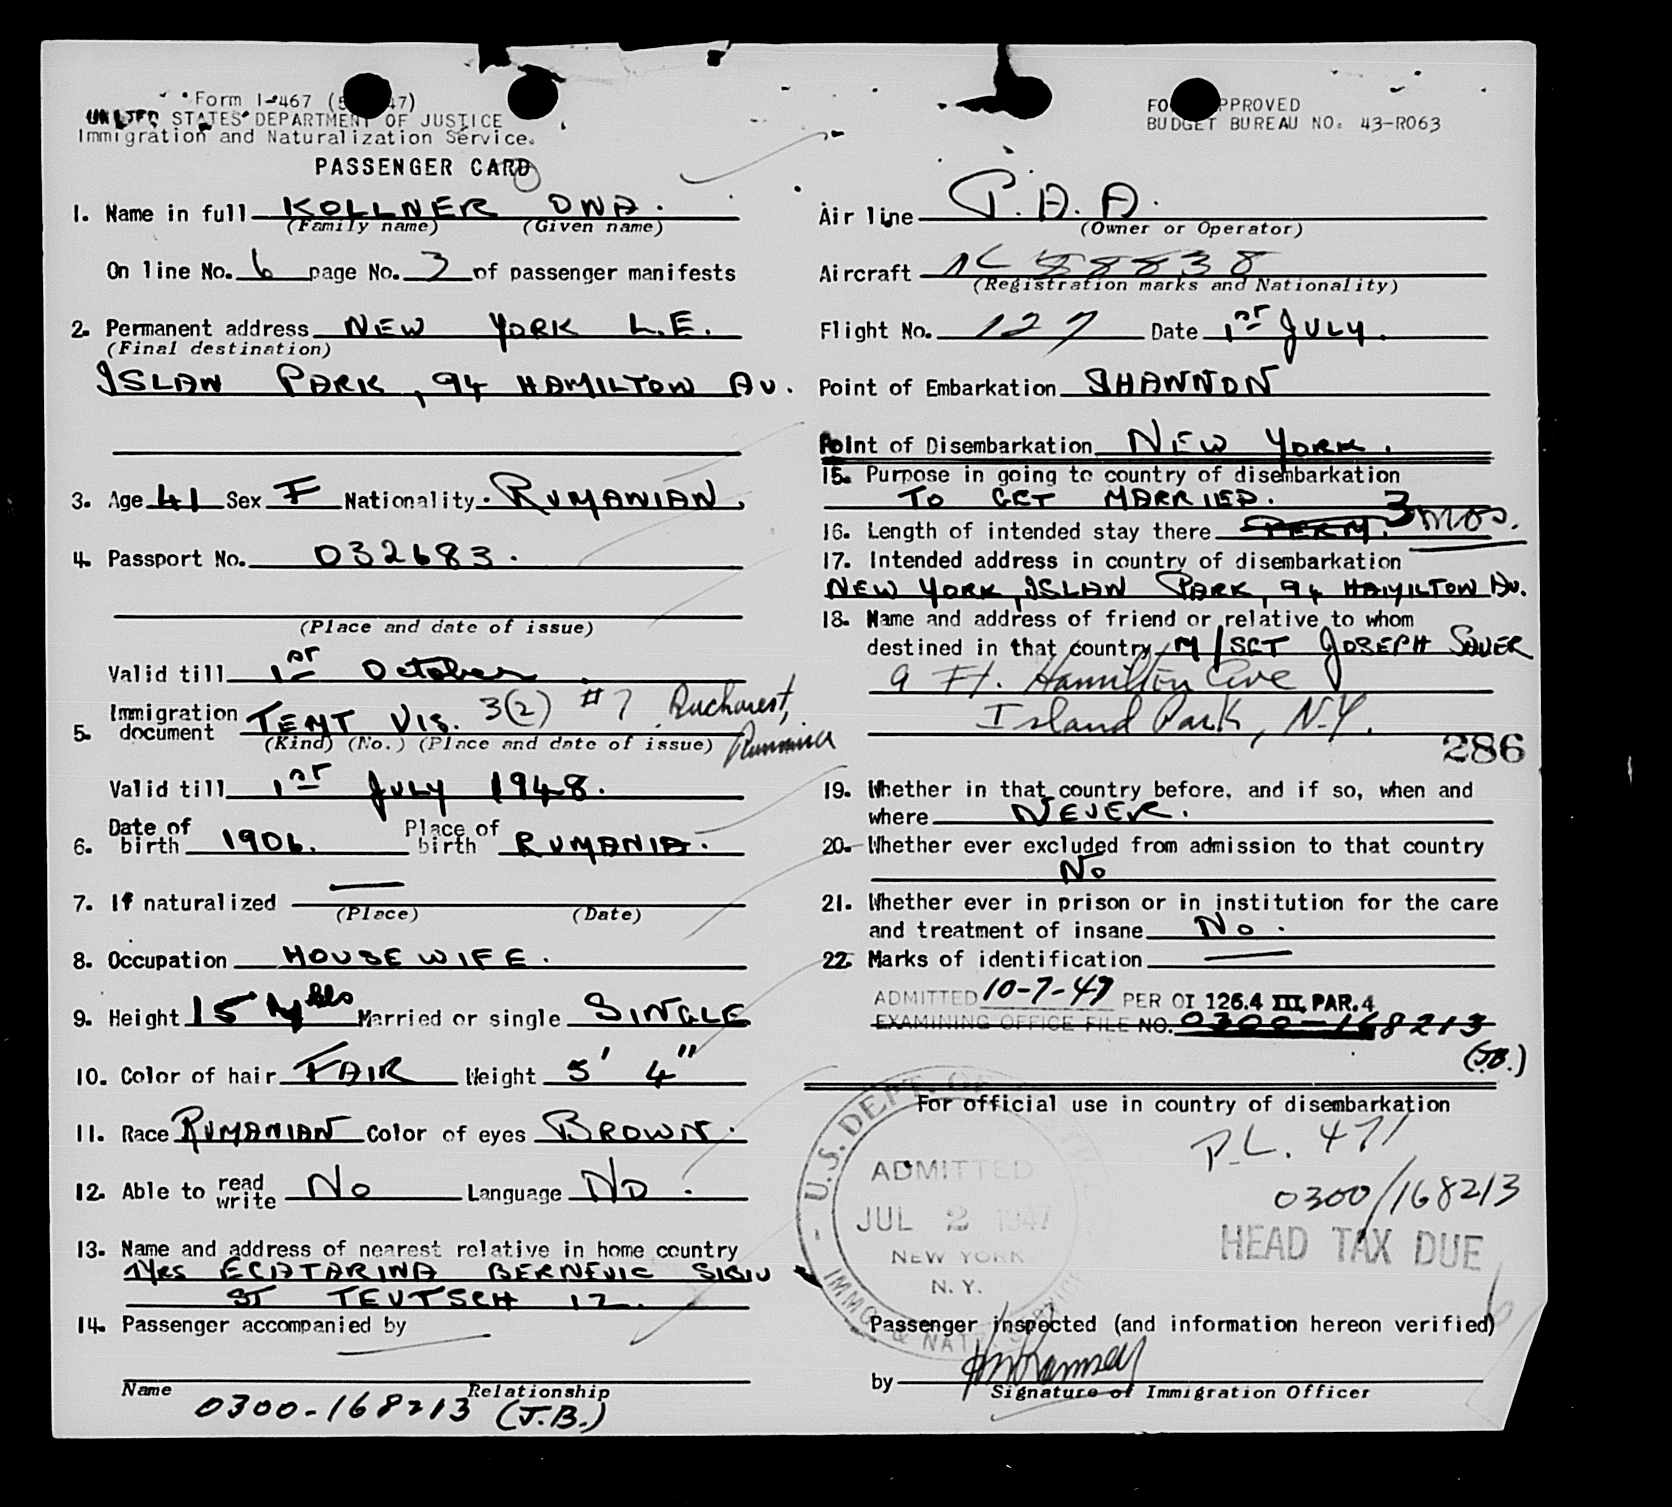 Form I-467 (5 47)
UNITED STATES DEPARTMENT OF JUSTICE
Immigration and Naturalization Service.
PASSENGER CARD
1. Name in full KOLLNER
(Family name) (Given name)
On line No. 6 page No. 3 of passenger manifests
2. Permanent address NEW YORK L.E.
(Final destination)
ISLAN PARK, 94 HAMILTON AV.
3. Age 41 Sex F Nationality RUMANIAN.
4. Passport No. 032683.
(Place and date of issue)
Valid till 1ST October
5. Immigration document TEMT VIS. 3(2) #7 Bucharest,
(Kind) (No.) (Place and date of issue)
Valid till 1ST JULY 1948.
6. Date of birth 1906. Place of birth RUMANIA.
7. If naturalized —
(Place) (Date)
8. Occupation HOUSEWIFE.
9. Height 15 Married or single SINGLE
10. Color of hair FAIR Height 5' 4"
11. Race RUMANIAN Color of eyes BROWN.
12. Able to read write No Language No.
13. Name and address of nearest relative in home country
MRS ECATARINA BERNEVIC SIBIU
ST TEUTSCH 12.
14. Passenger accompanied by —
Name Relationship
0300-168213 (J.B.)
FO PPROVED
BUDGET BUREAU NO. 43-R063
Air line P.A.A.
(Owner or Operator)
Aircraft NC 88838
(Registration marks and Nationality)
Flight No. 127 Date 1ST JULY.
Point of Embarkation SHANNON
Point of Disembarkation NEW YORK.
15. Purpose in going to country of disembarkation
TO GET MARRIED.
16. Length of intended stay there PERM. 3 mos.
17. Intended address in country of disembarkation
NEW YORK, ISLAN PARK, 94 HAMILTON AV.
18. Name and address of friend or relative to whom
destined in that country M/SGT JOSEPH SAUER
9 Ft. Hamilton Ave
Island Park, N.Y.
286
19. Whether in that country before, and if so, when and
where NEVER.
20. Whether ever excluded from admission to that country
No
21. Whether ever in prison or in institution for the care
and treatment of insane No.
22. Marks of identification —
ADMITTED 10-7-47 PER OI 126.4 III, PAR. 4
EXAMINING OFFICE FILE NO. 0300-168213
(J.B.)
For official use in country of disembarkation
P.L. 471
0300/168213
HEAD TAX DUE
U.S. DEPT. OF
ADMITTED
JUL 2 1947
NEW YORK
N.Y.
IMMG. & NATZ.
Passenger inspected (and information hereon verified)
by
Signature of Immigration Officer